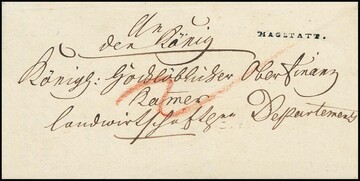 An
den König
MAGSTATT.
Königl: Hochlöblicher Ober finanz
Kamer
landwirtschaftln Departement